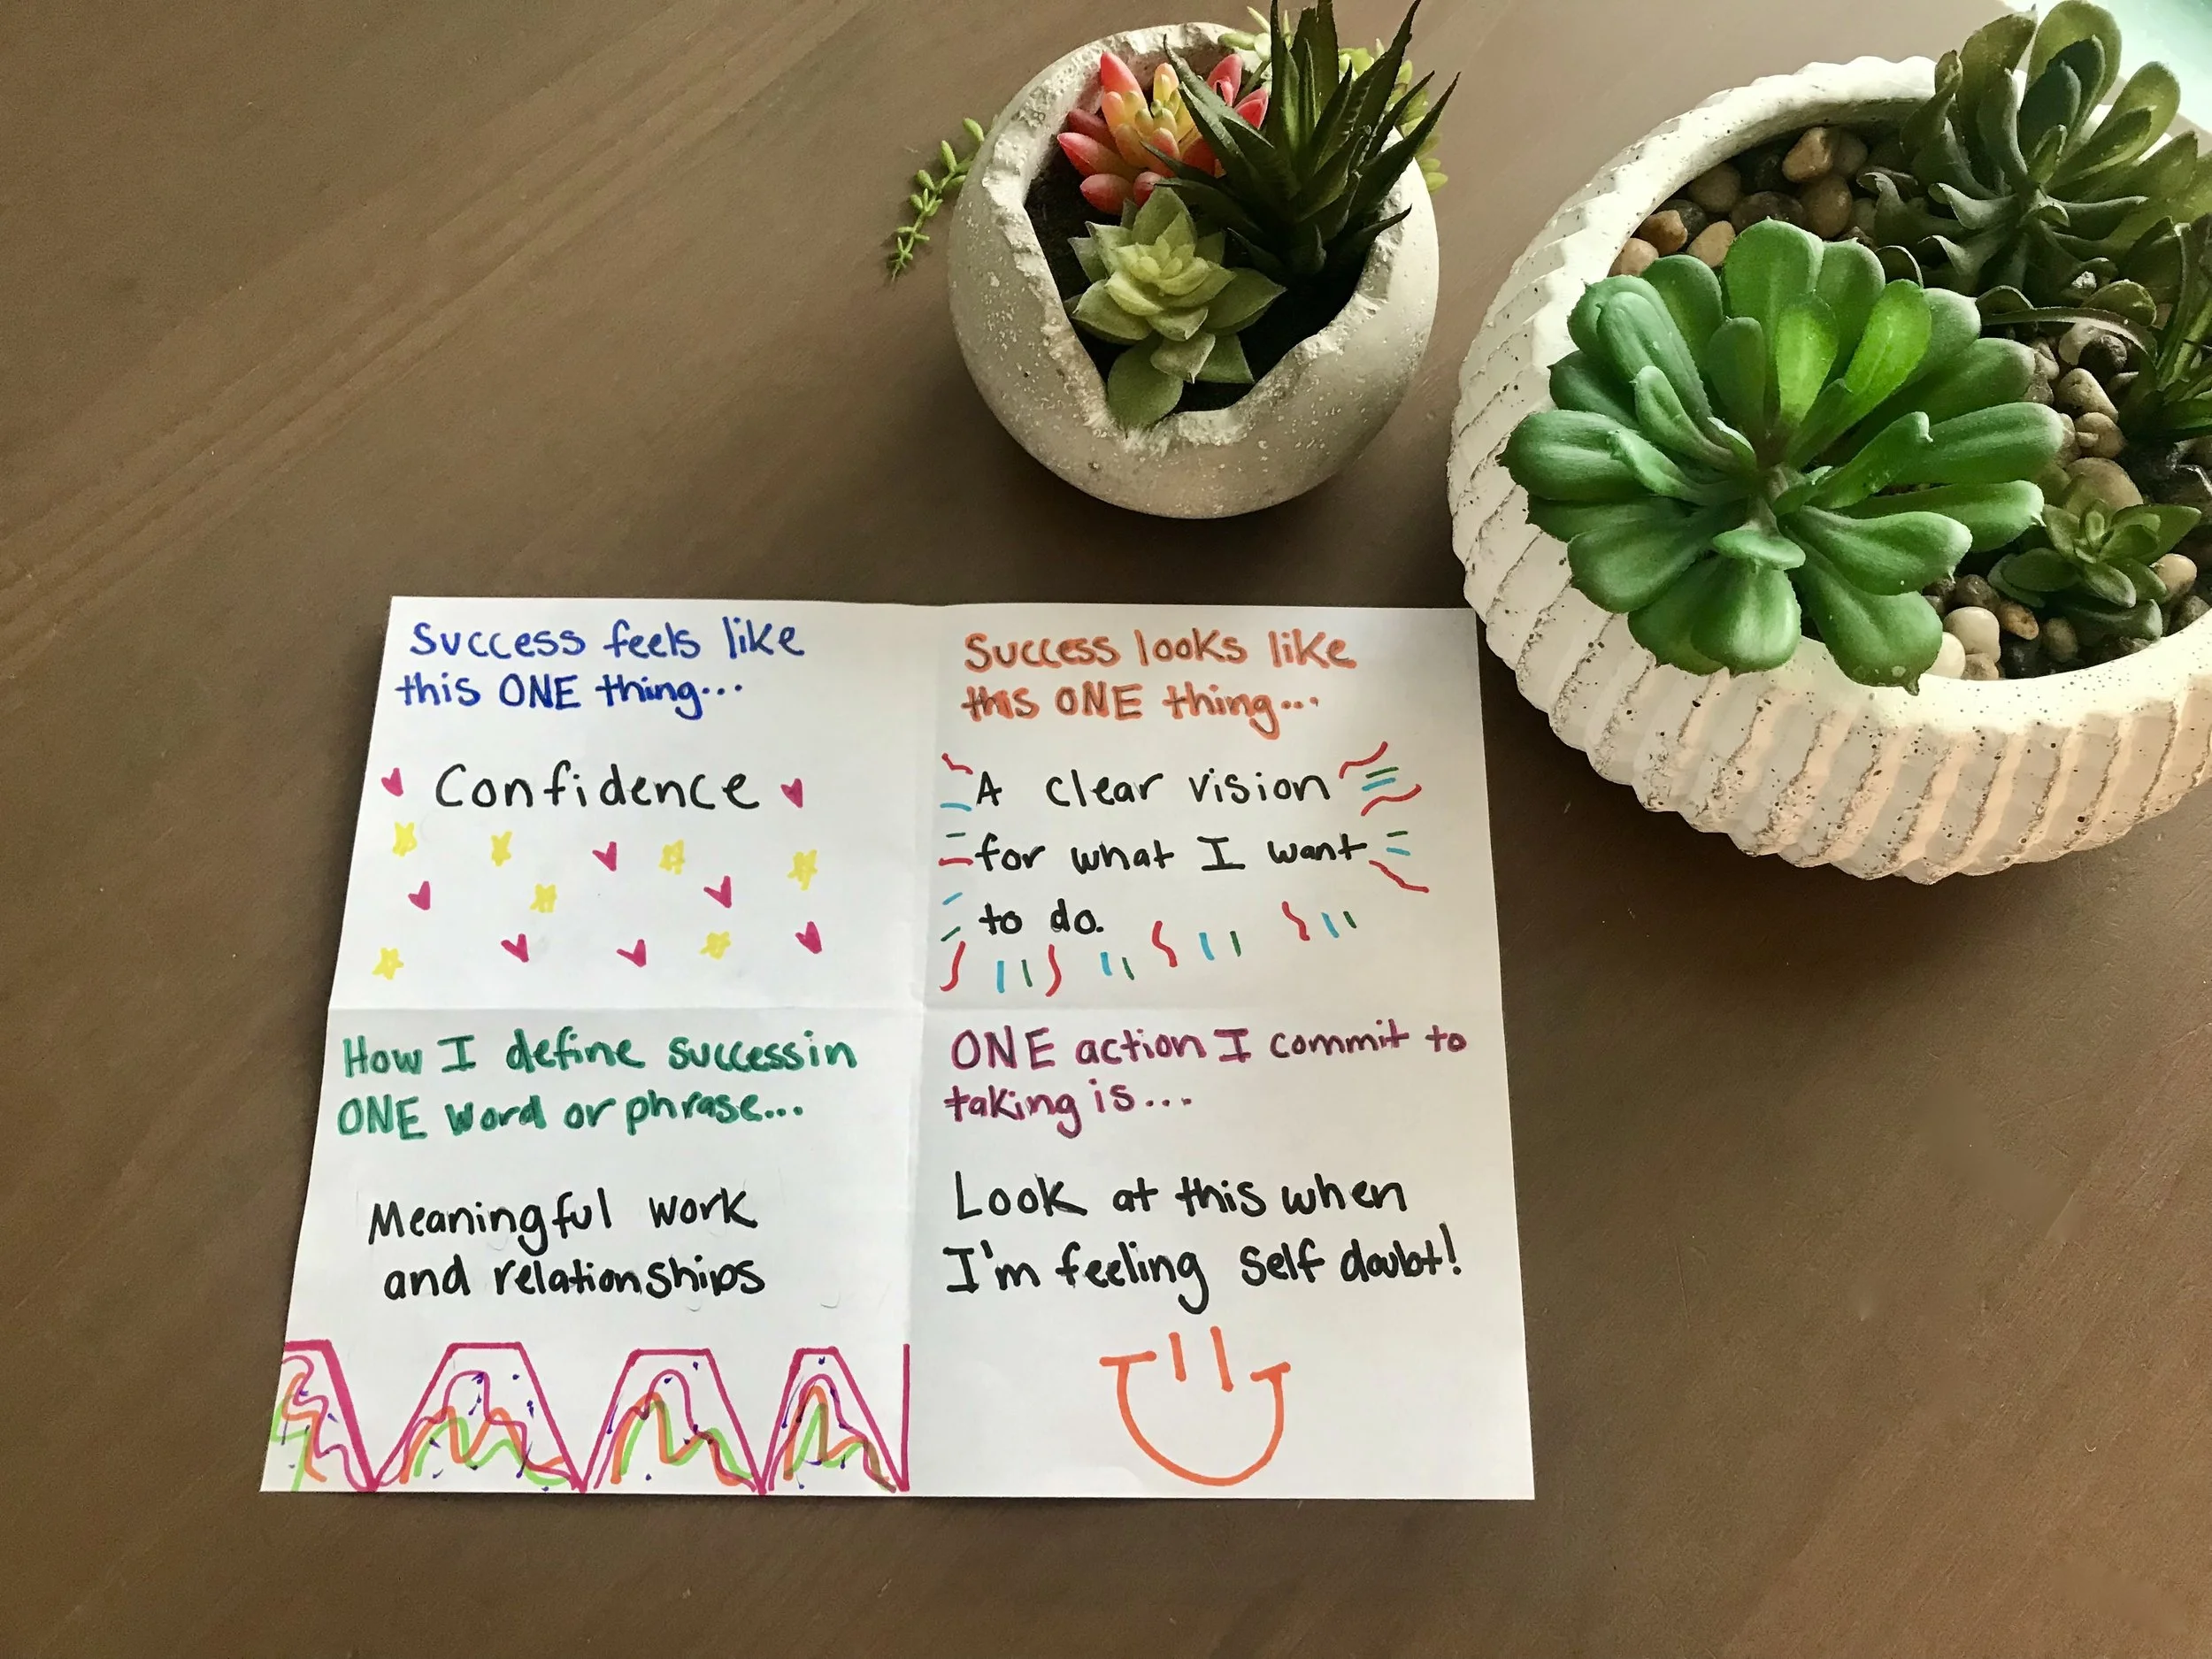 Success feels like
this ONE thing...
Confidence
Success looks like
this ONE thing...
A clear vision
for what I want
to do.
How I define success in
ONE word or phrase...
Meaningful work
and relationships
ONE action I commit to
taking is...
Look at this when
I'm feeling self doubt!